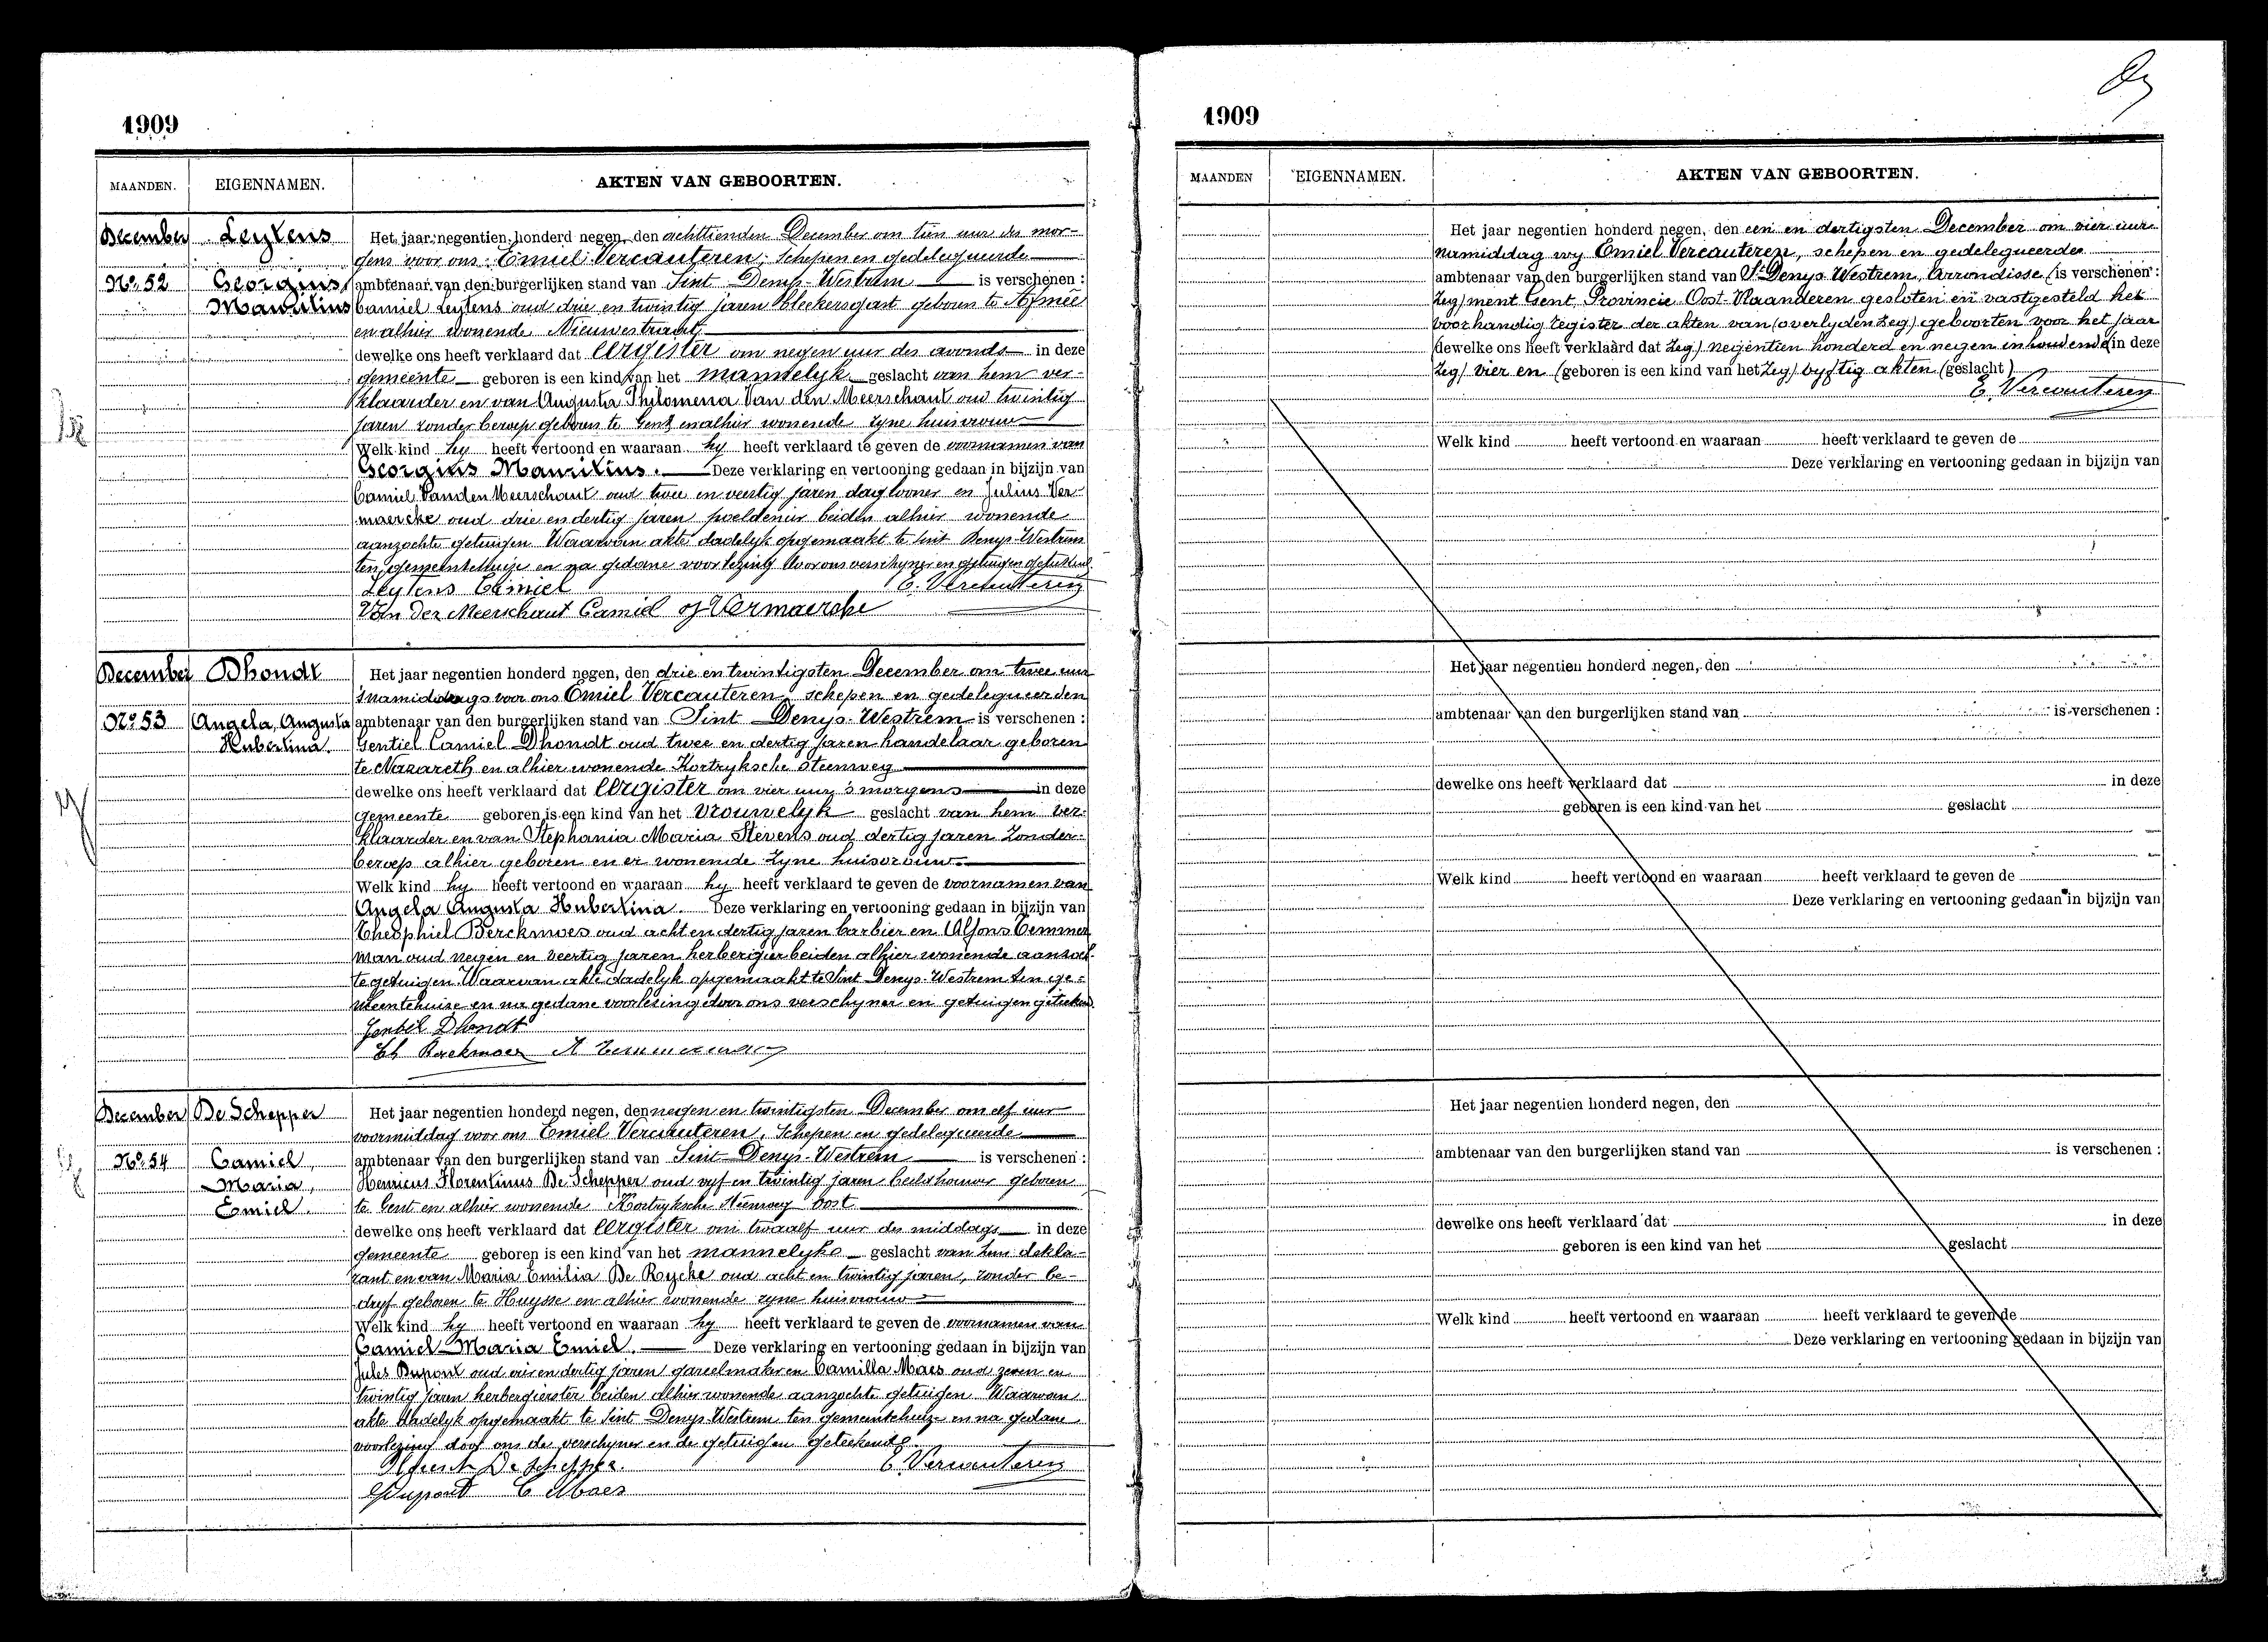 1909
MAANDEN. EIGENNAMEN. AKTEN VAN GEBOORTEN.
December Leytens Het jaar negentien honderd negen, den achttienden December om tien uur des mor-
gens voor ons Emiel Vercauteren, Schepen en gedelegueerde
No. 52 Georgius ambtenaar van den burgerlijken stand van Sint Denys-Westrem is verschenen :
Mauritius Camiel Leytens oud drie en twintig jaren bleekersgast geboren te
en alhier wonende Nieuwestraat
dewelke ons heeft verklaard dat Ergister om negen uur des avonds in deze
gemeente geboren is een kind van het mannelyk geslacht van hem ver-
klaarder en van Augusta Philomena Van den Meerschaut oud twintig
jaren zonder beroep geboren te Gent en alhier wonende zyne huisvrouw
Welk kind hy heeft vertoond en waaraan hy heeft verklaard te geven de voornamen van
Georgius Mauritius. Deze verklaring en vertooning gedaan in bijzijn van
Camiel Vanden Meerschaut oud twee en veertig jaren daglooner en Julius Ver-
maercke oud drie en dertig jaren poeldenier beiden alhier wonende
aanzochte getuigen Waarvan akte dadelyk opgemaakt te Sint Denys-Westrem
ten gemeentehuize en na gedane voorlezing door ons verschyner en getuigen geteekend.
Leytens Camiel E. Vercauteren
Van Der Meerschaut Camiel J Vermaercke
December Dhondt Het jaar negentien honderd negen, den drie en twintigsten December om twee uur
snamiddags voor ons Emiel Vercauteren, schepen en gedelegueerden
No. 53 Angela, Augusta ambtenaar van den burgerlijken stand van Sint Denys-Westrem is verschenen :
Hubertina. Gentiel Camiel Dhondt oud twee en dertig jaren handelaar geboren
te Nazareth en alhier wonende Kortryksche steenweg
dewelke ons heeft verklaard dat Ergister om vier uur s morgens in deze
gemeente geboren is een kind van het vrouwelyk geslacht van hem ver-
klaarder en van Stephania Maria Stevens oud dertig jaren zonder
beroep alhier geboren en er wonende zyne huisvrouw.
Welk kind hy heeft vertoond en waaraan hy heeft verklaard te geven de voornamen van
Angela Augusta Hubertina. Deze verklaring en vertooning gedaan in bijzijn van
Theophiel Berckmoes oud acht en dertig jaren barbier en Alfons Temmer
man oud negen en veertig jaren herbergier beiden alhier wonende aanzoch-
te getuigen Waarvan akte dadelyk opgemaakt te Sint Denys-Westrem ten ge-
meentehuize en na gedane voorlesing door ons verschyner en getuigen geteekend.
Gentil Dhondt
Th Berckmoes A Temmerman
December De Schepper Het jaar negentien honderd negen, den negen en twintigsten December om elf uur
voormiddag voor ons Emiel Vercauteren, Schepen en gedelegueerde
No. 54 Camiel, ambtenaar van den burgerlijken stand van Sint Denys-Westrem is verschenen :
Maria, Henricus Florentinus De Schepper oud vyf en twintig jaren beeldhouwer geboren
Emiel. te Gent en alhier wonende Kortryksche steenweg oost
dewelke ons heeft verklaard dat Ergister om twaalf uur des middags in deze
gemeente geboren is een kind van het mannelyke geslacht van hem dekla-
rant en van Maria Emilia De Rycke oud acht en twintig jaren, zonder be-
dryf geboren te Huysse en alhier wonende zyne huisvrouw
Welk kind hy heeft vertoond en waaraan hy heeft verklaard te geven de voornamen van
Camiel Maria Emiel. Deze verklaring en vertooning gedaan in bijzijn van
Jules Dupont oud en dertig jaren gareelmaker en Camilla Maes oud zeven en
twintig jaren herbergierster beiden alhier wonende aanzochte getuigen Waarvan
akte dadelyk opgemaakt te Sint Denys-Westrem ten gemeentehuize en na gedane
voorlezing door ons de verschyner en de getuigen geteekend.
De Schepper. E Vercauteren
Dupont C Maes
1909
MAANDEN EIGENNAMEN. AKTEN VAN GEBOORTEN.
Het jaar negentien honderd negen, den een en dertigsten December om vier uur
namiddag wy Emiel Vercauteren, schepen en gedelegueerde
ambtenaar van den burgerlijken stand van St Denys Westrem, Arrondisse (is verschenen :
Zeg) ment Gent, Provincie Oost-Vlaanderen gesloten en vastgesteld het
voorhandig register der akten van (overlyden Zeg) geboorten voor het jaar
(dewelke ons heeft verklaard dat Zeg) negentien honderd en negen inhoudende (in deze
Zeg) vier en (geboren is een kind van het Zeg) vyftig akten (geslacht)
E. Vercauteren
Welk kind heeft vertoond en waaraan heeft verklaard te geven de
Deze verklaring en vertooning gedaan in bijzijn van
Het jaar negentien honderd negen, den
ambtenaar van den burgerlijken stand van is verschenen :
dewelke ons heeft verklaard dat in deze
geboren is een kind van het geslacht
Welk kind heeft vertoond en waaraan heeft verklaard te geven de
Deze verklaring en vertooning gedaan in bijzijn van
Het jaar negentien honderd negen, den
ambtenaar van den burgerlijken stand van is verschenen :
dewelke ons heeft verklaard dat in deze
geboren is een kind van het geslacht
Welk kind heeft vertoond en waaraan heeft verklaard te geven de
Deze verklaring en vertooning gedaan in bijzijn van